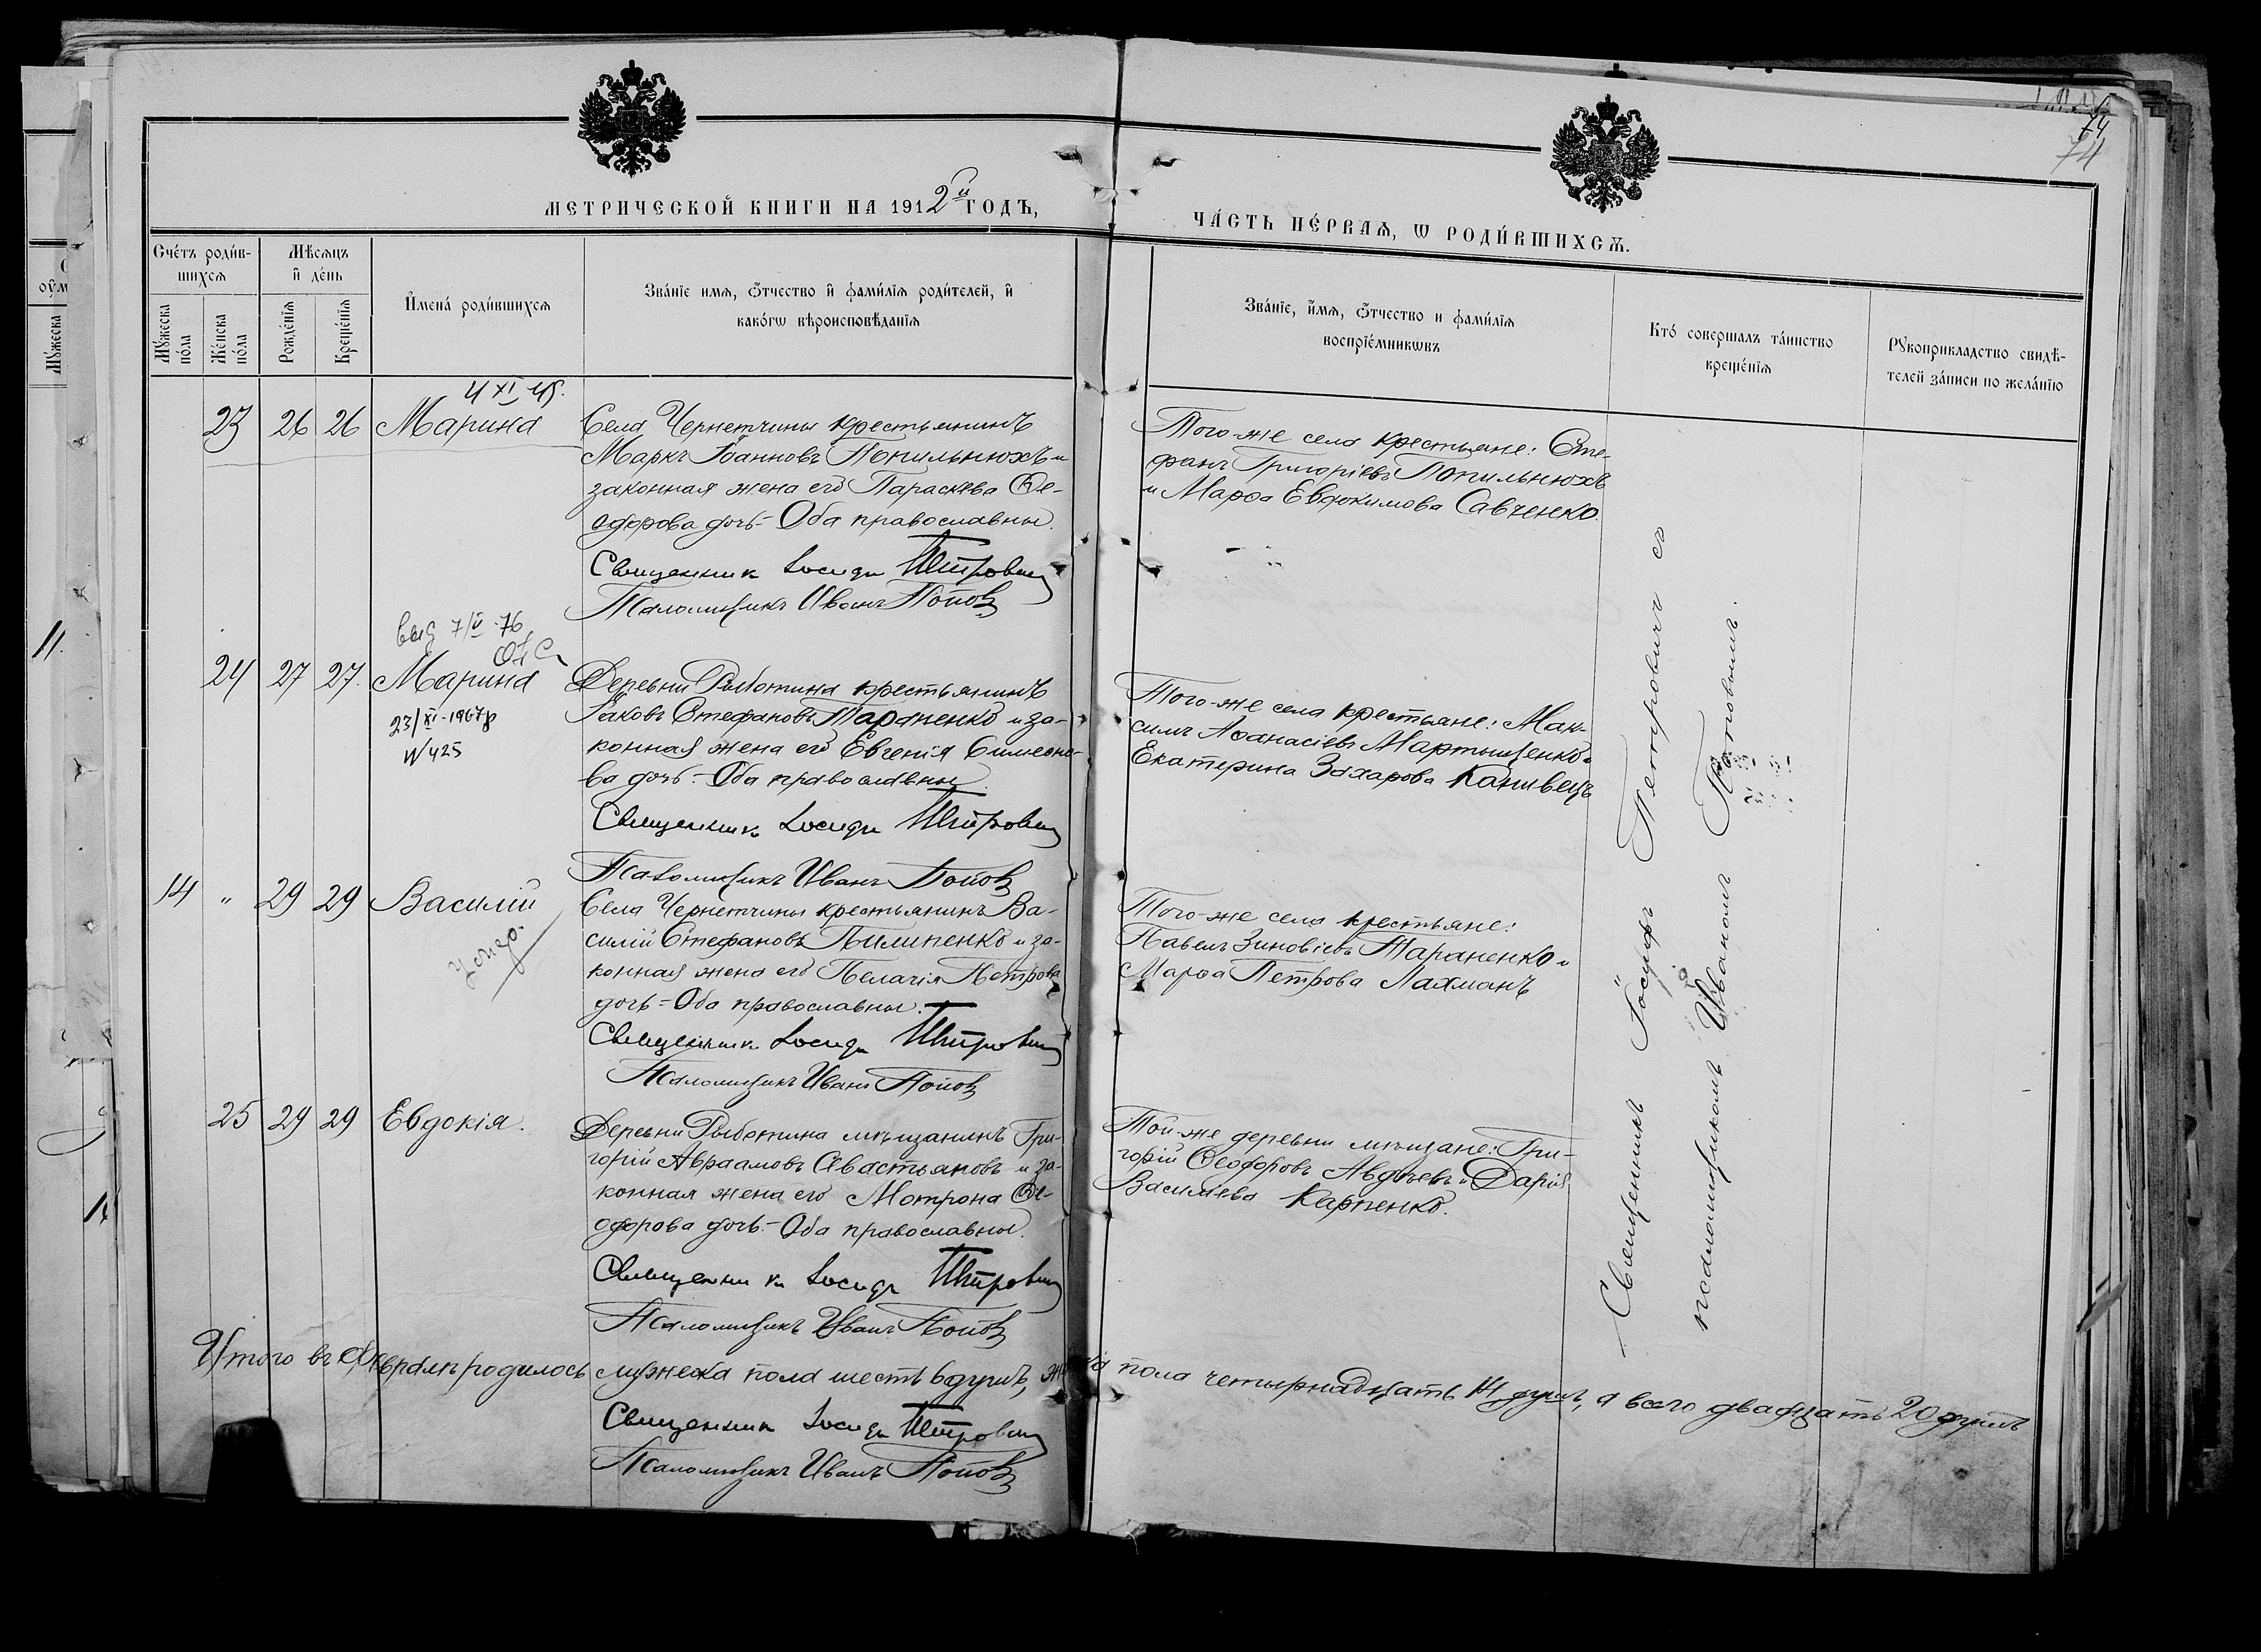 74
74
МЕТРИЧЕСКОЙ КНИГИ НА 1912й ГОДЪ,
ЧА́СТЬ ПЕ́РВАѦ, Ѡ РОДИ́ВШИХСѦ.
Сче́тъ роди́в-
шихсѧ
Мѣсѧцъ
и҆ де́нь
Мꙋ́жеска
по́ла
Же́нска
по́ла
Рожде́нїѧ
Креще́нїѧ
И҆мена́ роди́вшихсѧ
Зва́нїе имѧ, ѻ҆́тчество и҆ фами́лїѧ роди́телей, и҆
како́гѡ вѣроисповѣ́данїѧ
Зва́нїе, и҆́мѧ, ѻ҆́тчество и фами́лїѧ
воспрїе́мникѡвъ
Кто́ соверша́лъ та́инство
креще́нїѧ
Рꙋкоприкладство свидѣ-
телей за́писи по жела́нїю
4 XI 45.
23 26 26 Марина
Села Чернетчины крестьянинъ
Маркъ Іоанновъ Попильнюхъ и
законная жена его Параскева Ѳе-
одорова дочь - Оба православны.
Священник Іосиф Петрович
Псаломщикъ Иванъ Попов
Того-же села крестьяне: Сте-
фанъ Григоріевъ Попильнюхъ
и Марѳа Евдокимова Савченко.
выд 7/V-76
24 27 27. Марина
23/XI-1967р
N 425
Деревни Рыботина крестьянинъ
Іаковъ Стефановъ Тараненко и за-
конная жена его Евгенія Симеоно-
ва дочь. - Оба православны.
Священник Іосиф Петрович
Псаломщикъ Иванъ Попов
Того-же села крестьяне: Мак-
симъ Аѳанасіевъ Мартыщенко и
Екатерина Захарова Канивецъ
14 " 29 29 Василій
Села Чернетчины крестьянинъ Ва-
силій Стефановъ Пилипенко и за-
конная жена его Пелагія Петрова
дочь - Оба православны.
Священник Іосиф Петрович
Псаломщикъ Иванъ Попов
Того-же села крестьяне:
Павелъ Зиновіевъ Тараненко и
Марѳа Петрова Лахманъ
25 29 29 Евдокія.
Деревни Рыботина мѣщанинъ Гри-
горій Авраамовъ Севастьяновъ и за-
конная жена его Мотрона Ѳе-
одорова дочь. - Оба православны.
Священник Іосиф Петрович
Псаломщикъ Иванъ Попов
Той-же деревни мѣщане: Гри-
горій Ѳеодоровъ Авдѣевъ и Дарія
Василіева Карпенко.
Священникъ Іосифъ Петровичъ съ
псаломщикомъ Иваномъ Поповымъ.
Итого въ Февралѣ родилось мужеска пола шесть 6 душъ, пола четырнадцать 14 душъ, а всего двадцать 20 душъ
Священник Іосиф Петрович
Псаломщикъ Иванъ Попов
11.